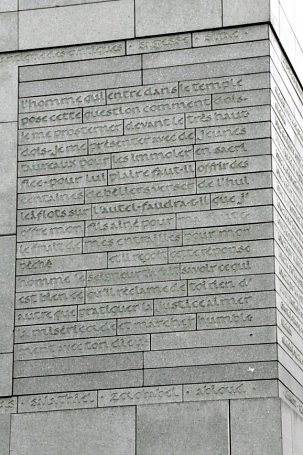 l'homme qui entre dans le temple
pose cette question comment dois-
je me prosterner devant le très haut
dois-je me présenter avec de jeunes
taureaux pour les immoler en sacri
fice pour lui plaire faut-il offrir des
centaines de béliers verser de l'hui
le à flots sur l'autel faudra-t-il que j'
offre mon fils aîné pour
le fruit de mes entrailles pour mon
péché et il reçoit cette réponse
homme le seigneur t'a fait savoir ce qui
est bien ce qu'il réclame de toi rien d'
autre que pratiquer la justice aimer
la miséricorde et marcher humble
ment avec ton dieu
salathiel zorobabel abioud